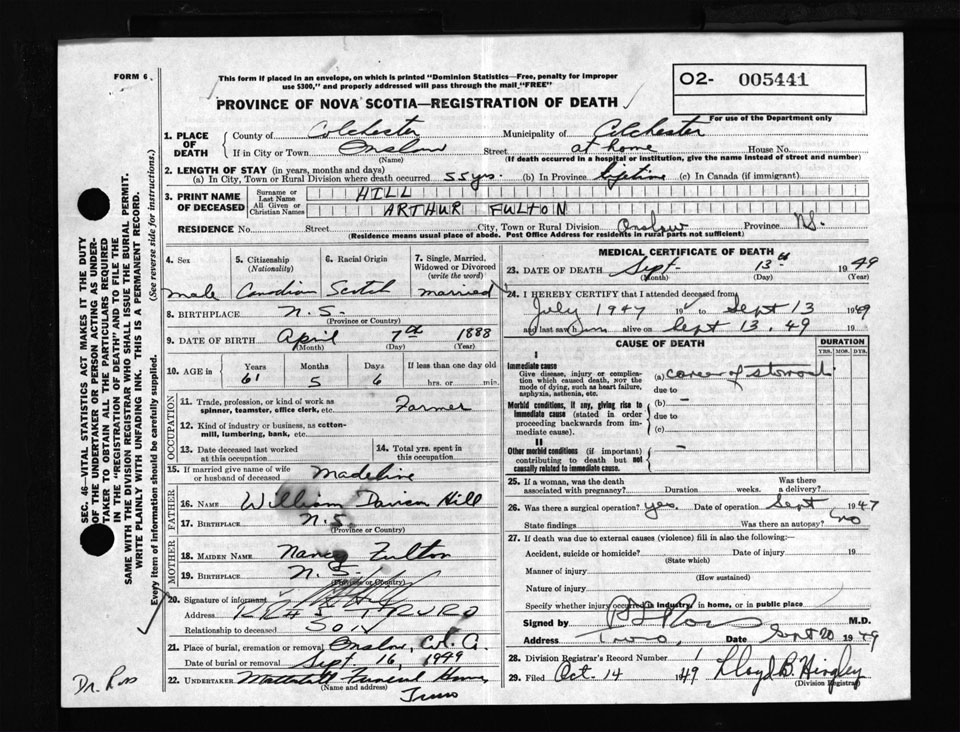 FORM 6
This form if placed in an envelope, on which is printed "Dominion Statistics—Free, penalty for improper
use $300," and properly addressed will pass through the mail "FREE"
PROVINCE OF NOVA SCOTIA—REGISTRATION OF DEATH
O2- 005441
For use of the Department only
1. PLACE OF DEATH
County of Colchester Municipality of Colchester
If in City or Town Onslow Street at home House No.
(Name) (If death occurred in a hospital or institution, give the name instead of street and number)
2. LENGTH OF STAY (in years, months and days)
(a) In City, Town or Rural Division where death occurred 55 yrs. (b) In Province lifetime (c) In Canada (if immigrant)
3. PRINT NAME OF DECEASED
Surname or Last Name HILL
All Given or Christian Names ARTHUR FULTON
RESIDENCE No. Street City, Town or Rural Division Onslow Province N.S.
(Residence means usual place of abode. Post Office Address for residents in rural parts not sufficient)
4. Sex 5. Citizenship (Nationality) 6. Racial Origin 7. Single, Married, Widowed or Divorced (write the word)
male Canadian Scotch married
8. BIRTHPLACE N.S.
(Province or Country)
9. DATE OF BIRTH April 7th 1888
(Month) (Day) (Year)
10. AGE in Years Months Days If less than one day old
61 5 6 hrs. or min.
OCCUPATION
11. Trade, profession, or kind of work as spinner, teamster, office clerk, etc. Farmer
12. Kind of industry or business, as cotton-mill, lumbering, bank, etc.
13. Date deceased last worked at this occupation
14. Total yrs. spent in this occupation
15. If married give name of wife or husband of deceased Madeline
FATHER
16. NAME William Davison Hill
17. BIRTHPLACE N.S.
(Province or Country)
MOTHER
18. MAIDEN NAME Nancy Fulton
19. BIRTHPLACE N.S.
(Province or Country)
20. Signature of informant
Address TRURO
Relationship to deceased SON
21. Place of burial, cremation or removal Onslow, Col. Co.
Date of burial or removal Sept. 16, 1949
22. UNDERTAKER Funeral Home
(Name and address) Truro
MEDICAL CERTIFICATE OF DEATH
23. DATE OF DEATH Sept. 13th 1949
(Month) (Day) (Year)
24. I HEREBY CERTIFY that I attended deceased from
July 1947 19 to Sept 13 1949
and last saw him alive on Sept 13, 49 19
CAUSE OF DEATH DURATION
YRS. MOS. DYS.
I
Immediate cause
Give disease, injury or complication which caused death, NOT the mode of dying, such as heart failure, asphyxia, asthenia, etc.
(a) cancer of stomach
due to
Morbid conditions, if any, giving rise to immediate cause (stated in order proceeding backwards from immediate cause).
(b) —
due to
(c)
II
Other morbid conditions (if important) contributing to death but not causally related to immediate cause. —
25. If a woman, was the death associated with pregnancy? Duration weeks Was there a delivery?
26. Was there a surgical operation? yes. Date of operation Sept 1947
State findings Was there an autopsy? no
27. If death was due to external causes (violence) fill in also the following:—
Accident, suicide or homicide? Date of injury 19
(State which)
Manner of injury
(How sustained)
Nature of injury
Specify whether injury occurred in industry, in home, or in public place
Signed by Ross M.D.
Address Truro, Date Sept 20 1949
28. Division Registrar's Record Number 1
29. Filed Oct. 14 1949 Lloyd B. Hingley
(Division Registrar)
SEC. 46—VITAL STATISTICS ACT MAKES IT THE DUTY
OF THE UNDERTAKER OR PERSON ACTING AS UNDER-
TAKER TO OBTAIN ALL THE PARTICULARS REQUIRED
IN THE "REGISTRATION OF DEATH" AND TO FILE THE
SAME WITH THE DIVISION REGISTRAR WHO SHALL ISSUE THE BURIAL PERMIT.
WRITE PLAINLY WITH UNFADING INK. THIS IS A PERMANENT RECORD.
Every item of information should be carefully supplied. (See reverse side for instructions.)
Dr. Ross